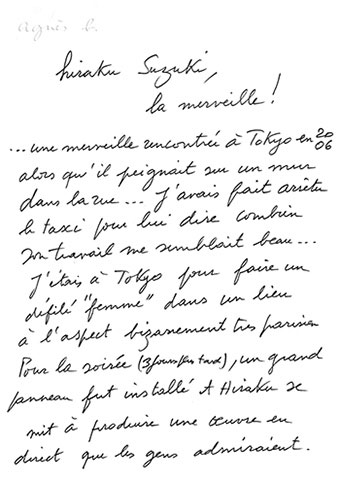 agnès b.
hiraku Suzuki,
la merveille !
...une merveille rencontrée à Tokyo en 2006
alors qu'il peignait sur un mur
dans la rue... J'avais fait arrêter
le taxi pour lui dire combien
son travail me semblait beau...
J'étais à Tokyo pour faire un
défilé "femme" dans un lieu
à l'aspect bizarrement très parisien
Pour la soirée (3 jours plus tard), un grand
panneau fut installé et Hiraku se
mit à produire une œuvre en
direct que les gens admiraient.